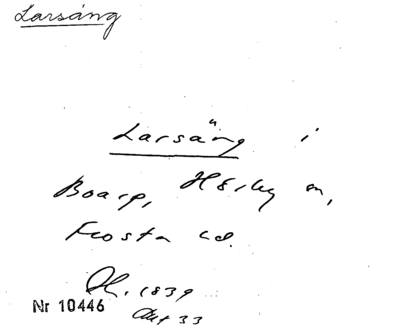 Larsäng
Larsäng i
Boarp, Hörby sn,
Frosta hd.
Ol. 1839
Akt 33
Nr 10446